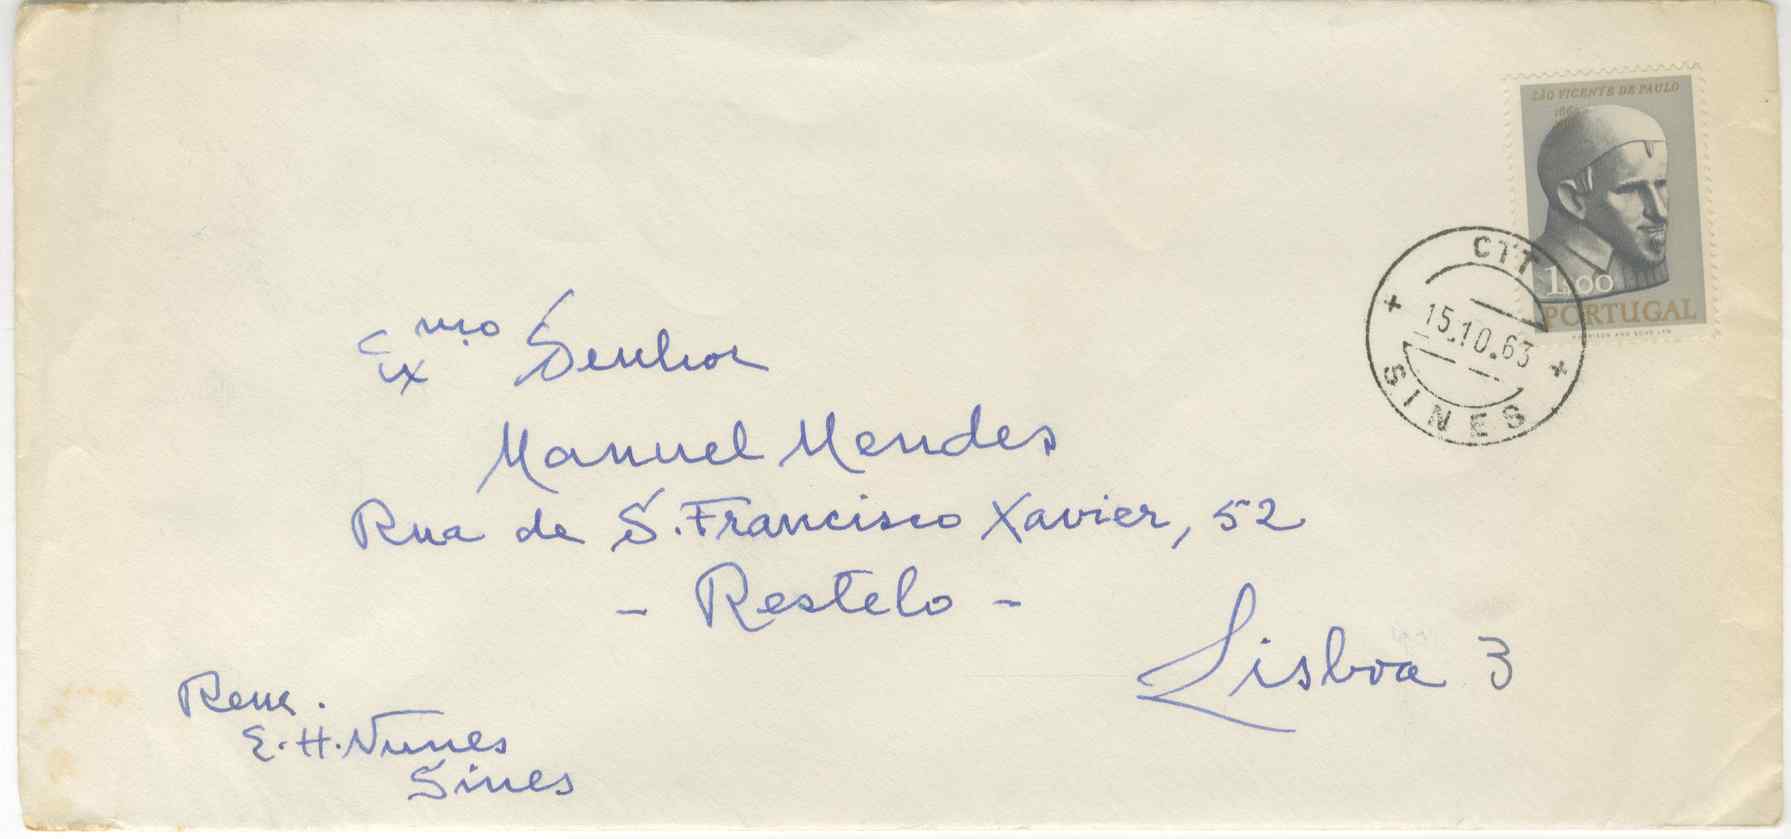 SÃO VICENTE DE PAULO
1$00
PORTUGAL
CTT
15.10.63
SINES
Exmo Senhor
Manuel Mendes
Rua de S. Francisco Xavier, 52
- Restelo -
Lisboa 3
Rem.
E. H. Nunes
Sines